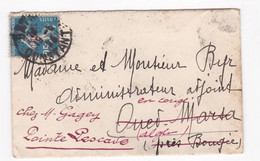 Madame et Monsieur Byr
Administrateur adjoint
en congé
chez M. Gagey
Oued-Marsa
Pointe Pescade
alger
(près Bougie)